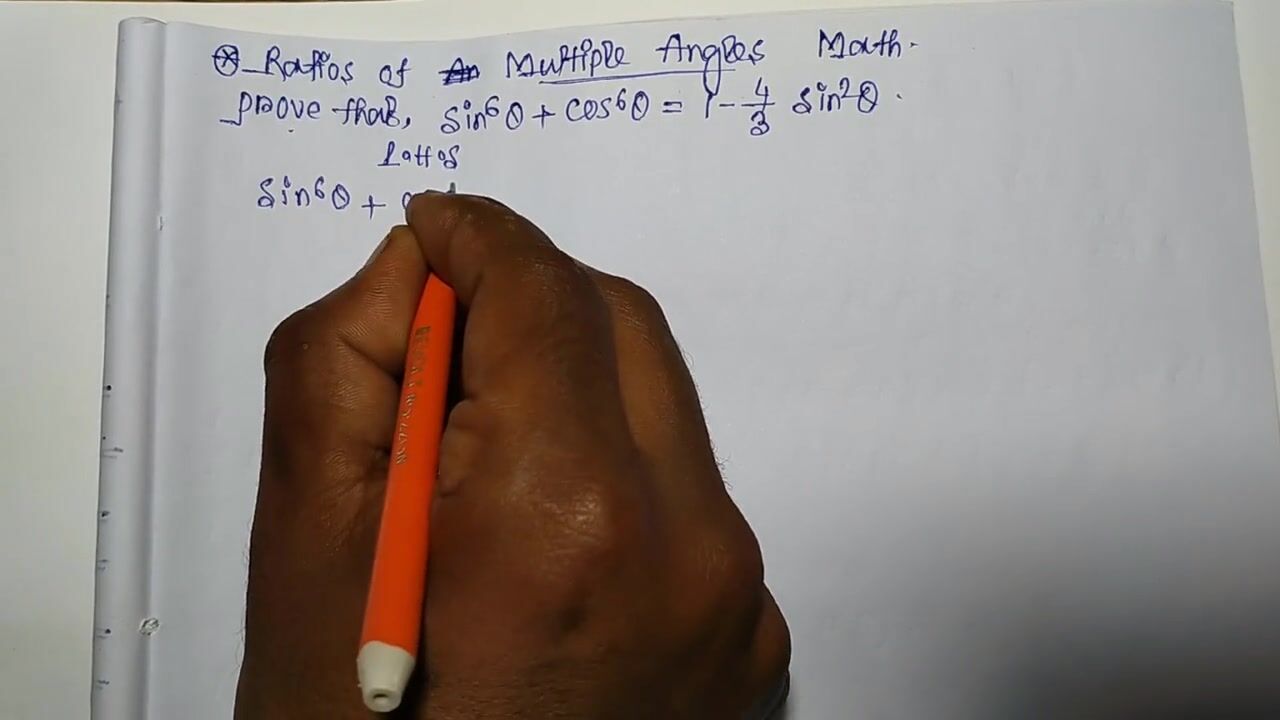 Ratios of Multiple Angles Math.
prove that, sin⁶θ + cos⁶θ = 1 - 4/3 sin²θ.
sin⁶θ +